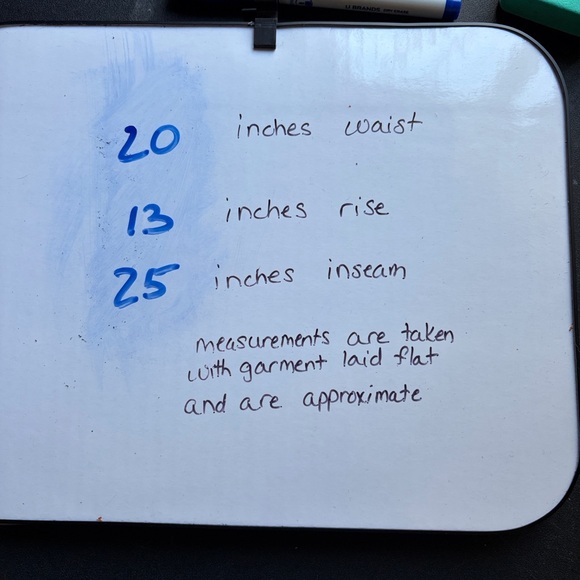 20 inches waist
13 inches rise
25 inches inseam
measurements are taken
with garment laid flat
and are approximate